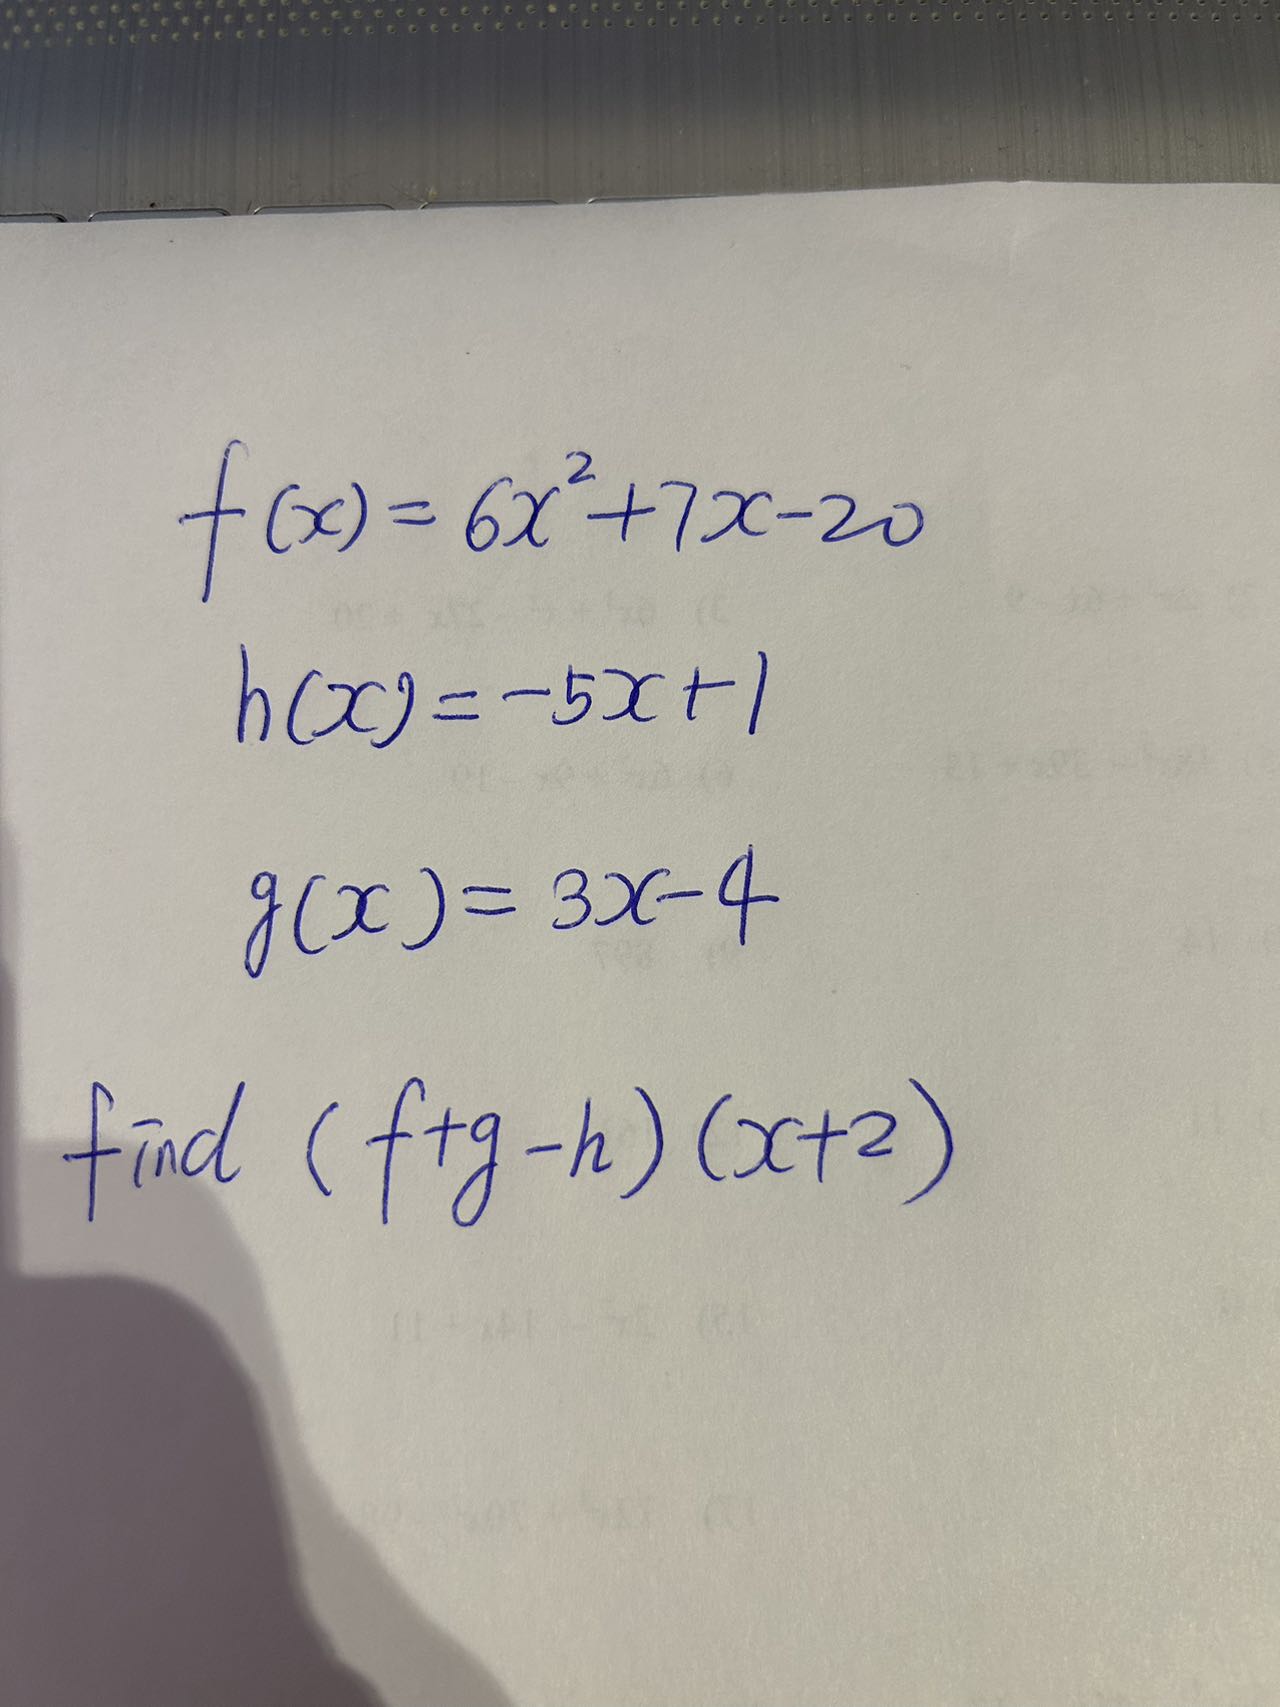 f(x) = 6x²+7x-20
h(x) = -5x+1
g(x) = 3x-4
find (f+g-h)(x+2)